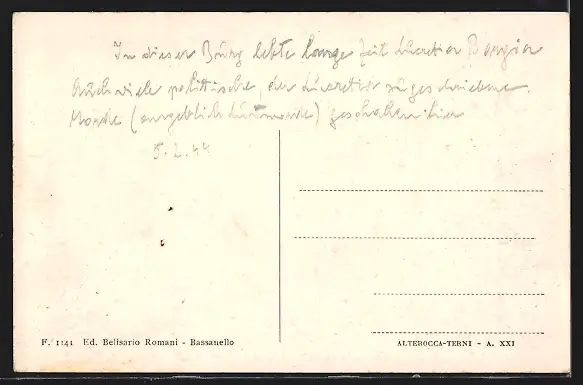 In dieser Burg lebte lange Zeit Lucretia Borgia
Auch viele politische, der Lucretia zugeschriebene
Morde (angeblich Lustmorde) geschahen hier
5.2.44
F. 1141 Ed. Belisario Romani - Bassanello
ALTEROCCA-TERNI - A. XXI